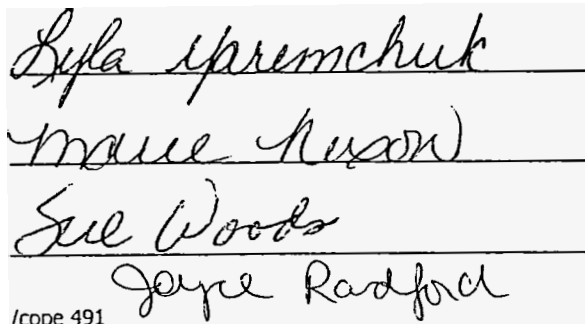 Lyla Yaremchuk
Marie Nixon
Sue Woods
Joyce Radford
/cope 491